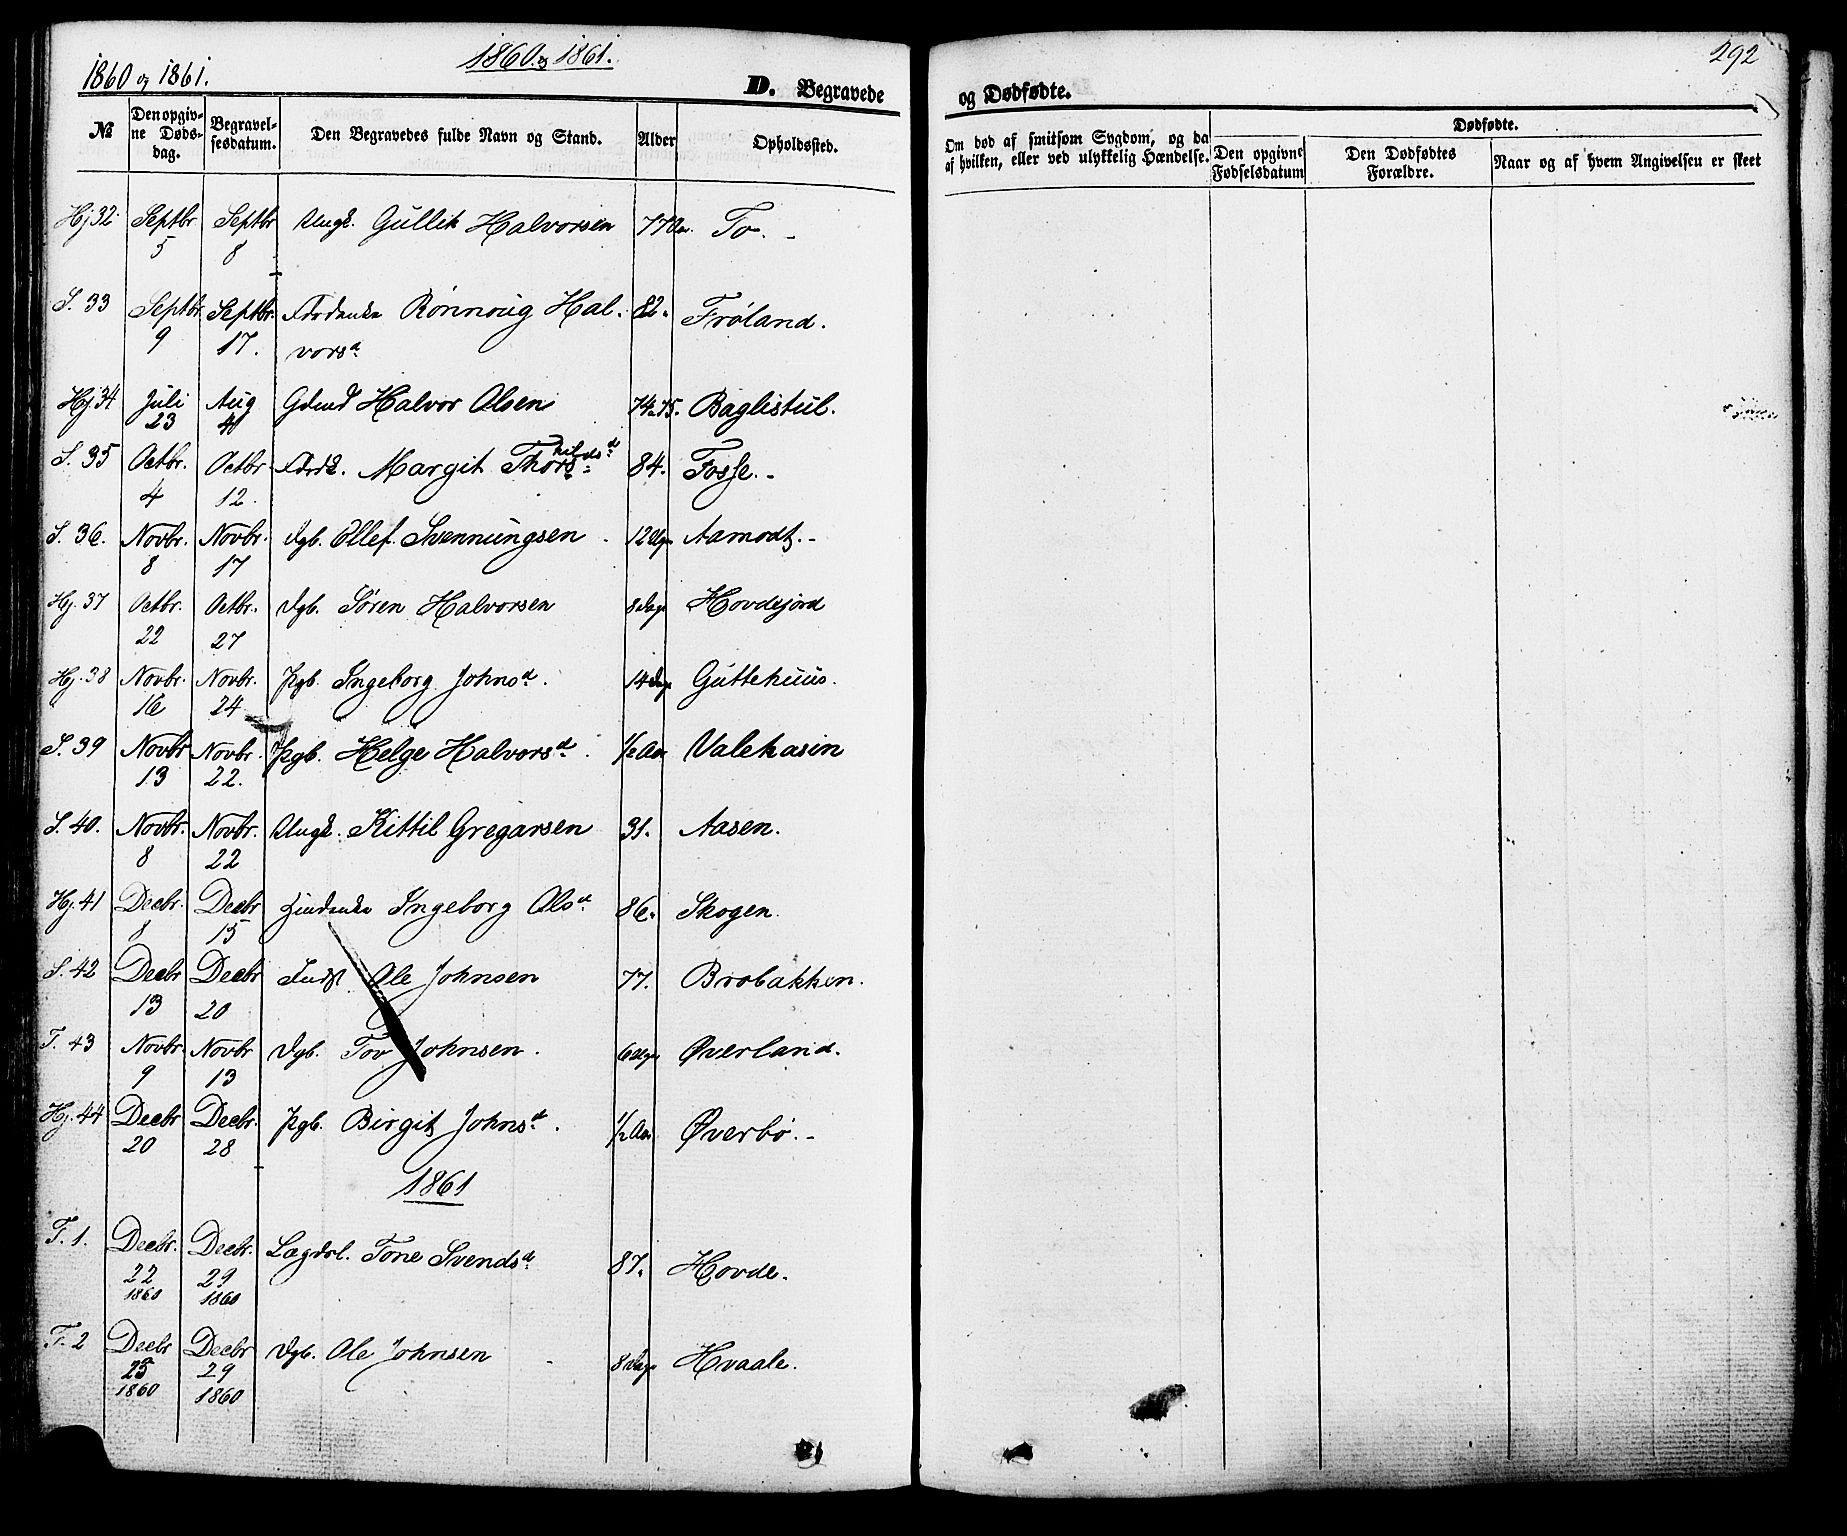 1860 og 1861.
1860 & 1861.
292
D. Begravede
og Dødfødte.
№
Den opgivne Dødsdag.
Begravelsesdatum.
Den Begravedes fulde Navn og Stand.
Alder
Opholdssted.
Om død af smitsom Sygdom, og da
af hvilken, eller ved ulykkelig Hændelse.
Dødfødte.
Den opgivne Fødselsdatum
Den Dødfødtes Forældre.
Naar og af hvem Angivelsen er skeet
Hj 32. Septbr 5 Septbr 8 Ungk. Gullik Halvorsen 77 Aar. To.
S. 33 Septbr. 9 Septbr. 17. Rønnoug Hal-
vorsd. 82. Frøland.
Hj 34 Juli 23 Aug 4 Gdmd Halvor Olsen 74 a 75. Baglistul.
S. 35 Octbr. 4 Octbr 12. Margit Thorkildsd. 84. Fosse.
S. 36. Novbr. 8 Novbr. 17 Dgb. Ollef. Svennungsen 12 Uger Aamodt.
Hj. 37 Octbr. 22 Octbr. 27 Dgb. Søren Halvorsen 8 Dage Hovdejord
Hj. 38 Novbr. 16 Novbr. 24 Pgb. Ingeborg Johnsd. 14 Dage Guttehuus.
S. 39 Novbr 13 Novbr. 22. Pgb. Helge Halvorsd. 1/2 Aar Valekasin
S. 40. Novbr. 8 Novbr. 22 Ungk. Kittil Gregarsen 31. Aasen.
Hj. 41 Decbr. 8 Decbr 15 Ingeborg Olsd. 86. Skogen.
S. 42 Decbr 13 Decbr 20 Inds Ole Johnsen 77. Brobakken.
T. 43 Novbr 9 Novbr 13 Dgb. Tov Johnsen. 6 Uger Øverland.
Hj. 44 Decbr 20 Decbr. 28 Pgb. Birgit Johnsd. 1/2 Aar. Øverbø.
1861
T. 1. Decbr. 22 1860 Decbr. 29 1860 Lægdsl. Tone Svendsd. 87. Hovde.
T. 2 Decbr 25 1860 Decbr 29 1860 Dgb. Ole Johnsen 8 Dage Hvaale.